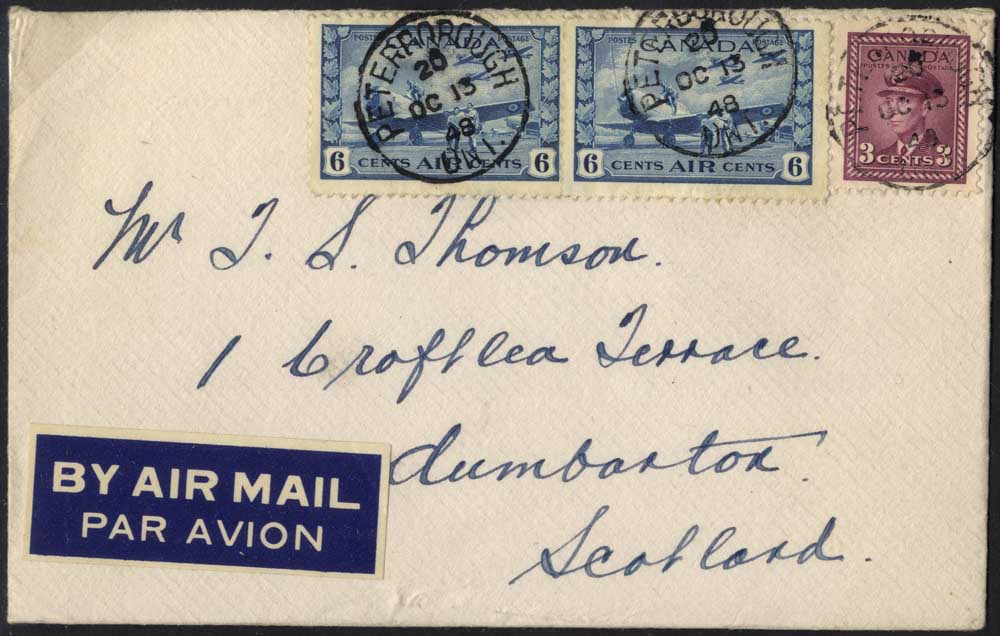 POSTES CANADA POSTAGE
6 CENTS AIR CENTS 6
PETERBOROUGH
20
OC 13
48
ONT.
POSTES CANADA POSTAGE
6 CENTS AIR CENTS 6
PETERBOROUGH
20
OC 13
48
ONT.
CANADA
POSTES POSTAGE
3 CENTS 3
20
OC 13
Mr T. S. Thomson.
1 Croftlea Terrace.
Dumbarton
Scotland.
BY AIR MAIL
PAR AVION